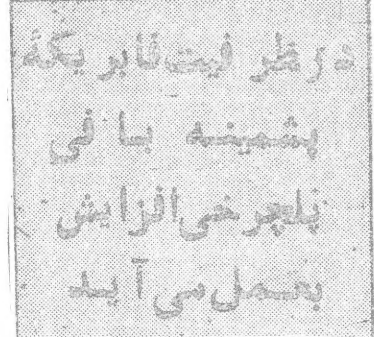 در ظرفیت فابریکهٔ
پشمینه بافی
پلچرخی افزایش
بعمل می آید